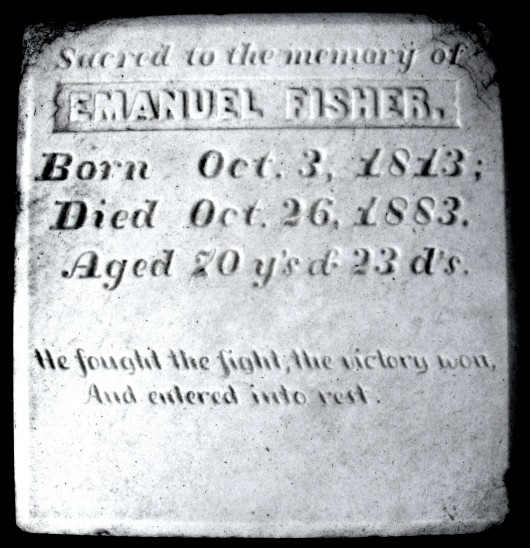 Sacred to the memory of
EMANUEL FISHER.
Born Oct. 3, 1813;
Died Oct. 26, 1883.
Aged 70 y's & 23 d's.
He fought the fight, the victory won,
And entered into rest.